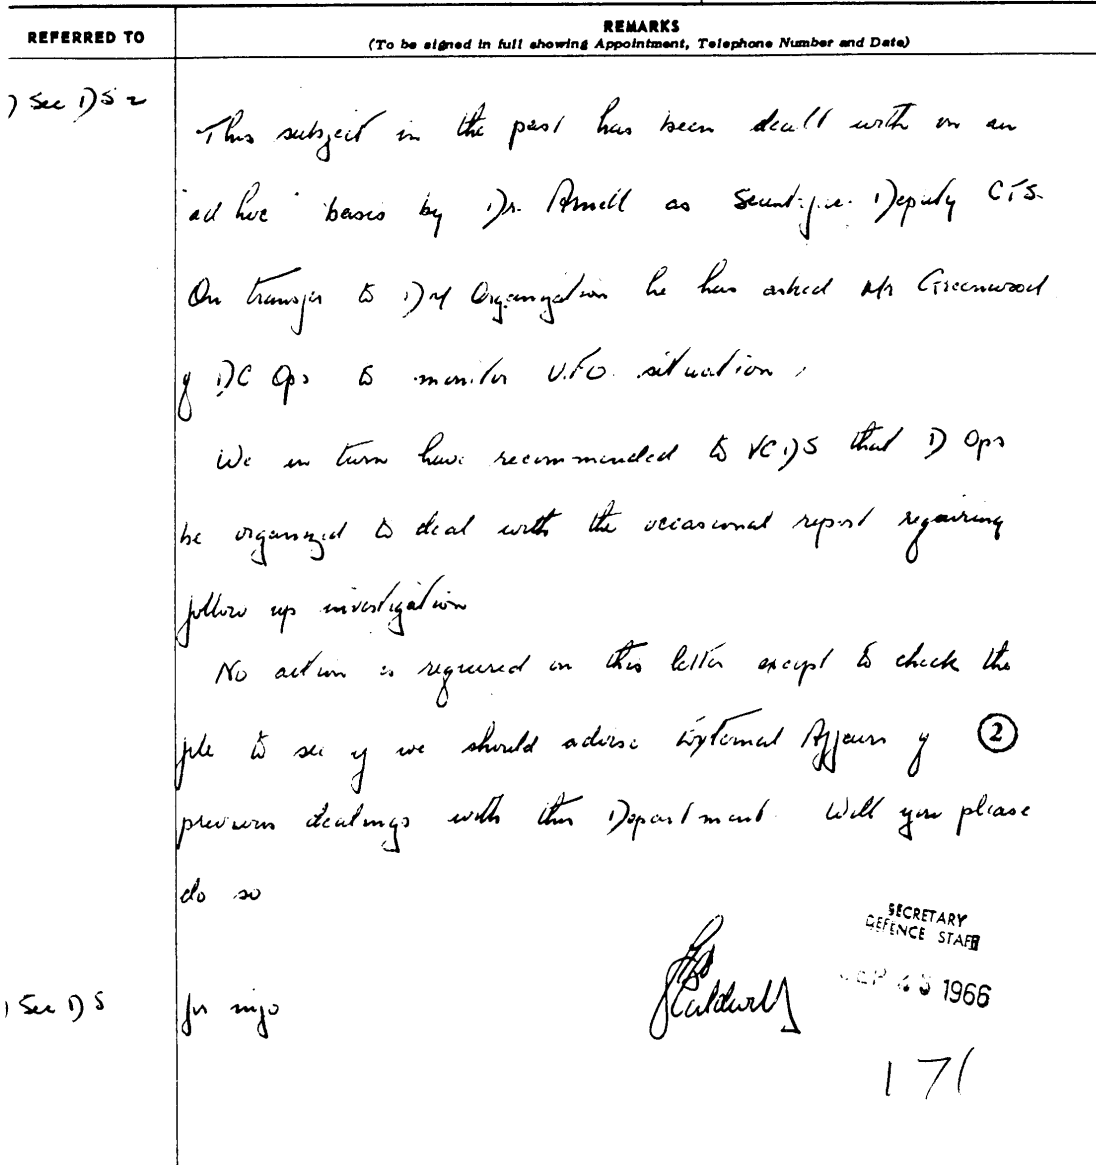 REFERRED TO
REMARKS
(To be signed in full showing Appointment, Telephone Number and Date)
) Sec DS 2
This subject in the past has been dealt with on an
"ad hoc" basis by Dr. Arnell as Scientific Deputy CTS.
On transfer to Organization he has asked Mr Greenwood
of DC Ops to monitor U.F.O. situation.
We in turn have recommended to VCDS that D Ops
be organized to deal with the occasional report requiring
follow up investigation
No action is required on this letter except to check the
file to see if we should advise External Affairs of ②
previous dealings with this Department. Will you please
do so
SECRETARY
DEFENCE STAFF
SEP 1966
) Sec DS
for info
Caldwell
171